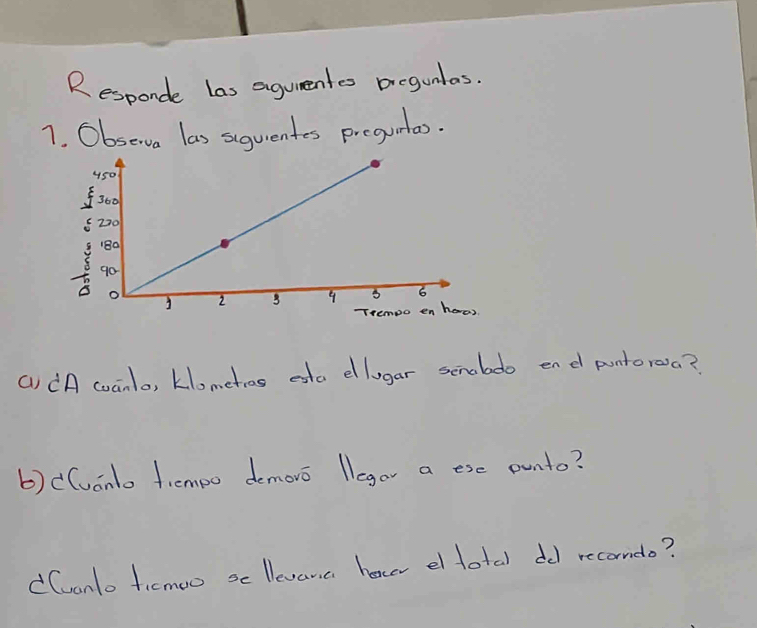 Responde las siguientes preguntas.
1. Observa las siguientes preguntas.
450
360
270
180
90
0
Distancia en Km
1 2 3 4 5 6
Tiempo en horas
a) ¿A cuánlos kilometros esta el lugar señalado en el punto rosa?
b) ¿Cuánto tiempo demoró llegar a ese punto?
¿Cuanto tiempo se llevaria hacer el total del recorrido?